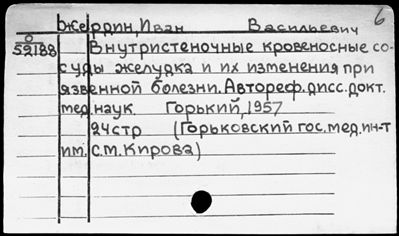 6
Жердин, Иван Васильевич
О
52188
Внутристеночные кровеносные со-
суды желудка и их изменения при
язвенной болезни. Автореф. дисс. докт.
мед. наук. Горький, 1957
24стр (Горьковский гос. мед. ин-т
им. С.М. Кирова)